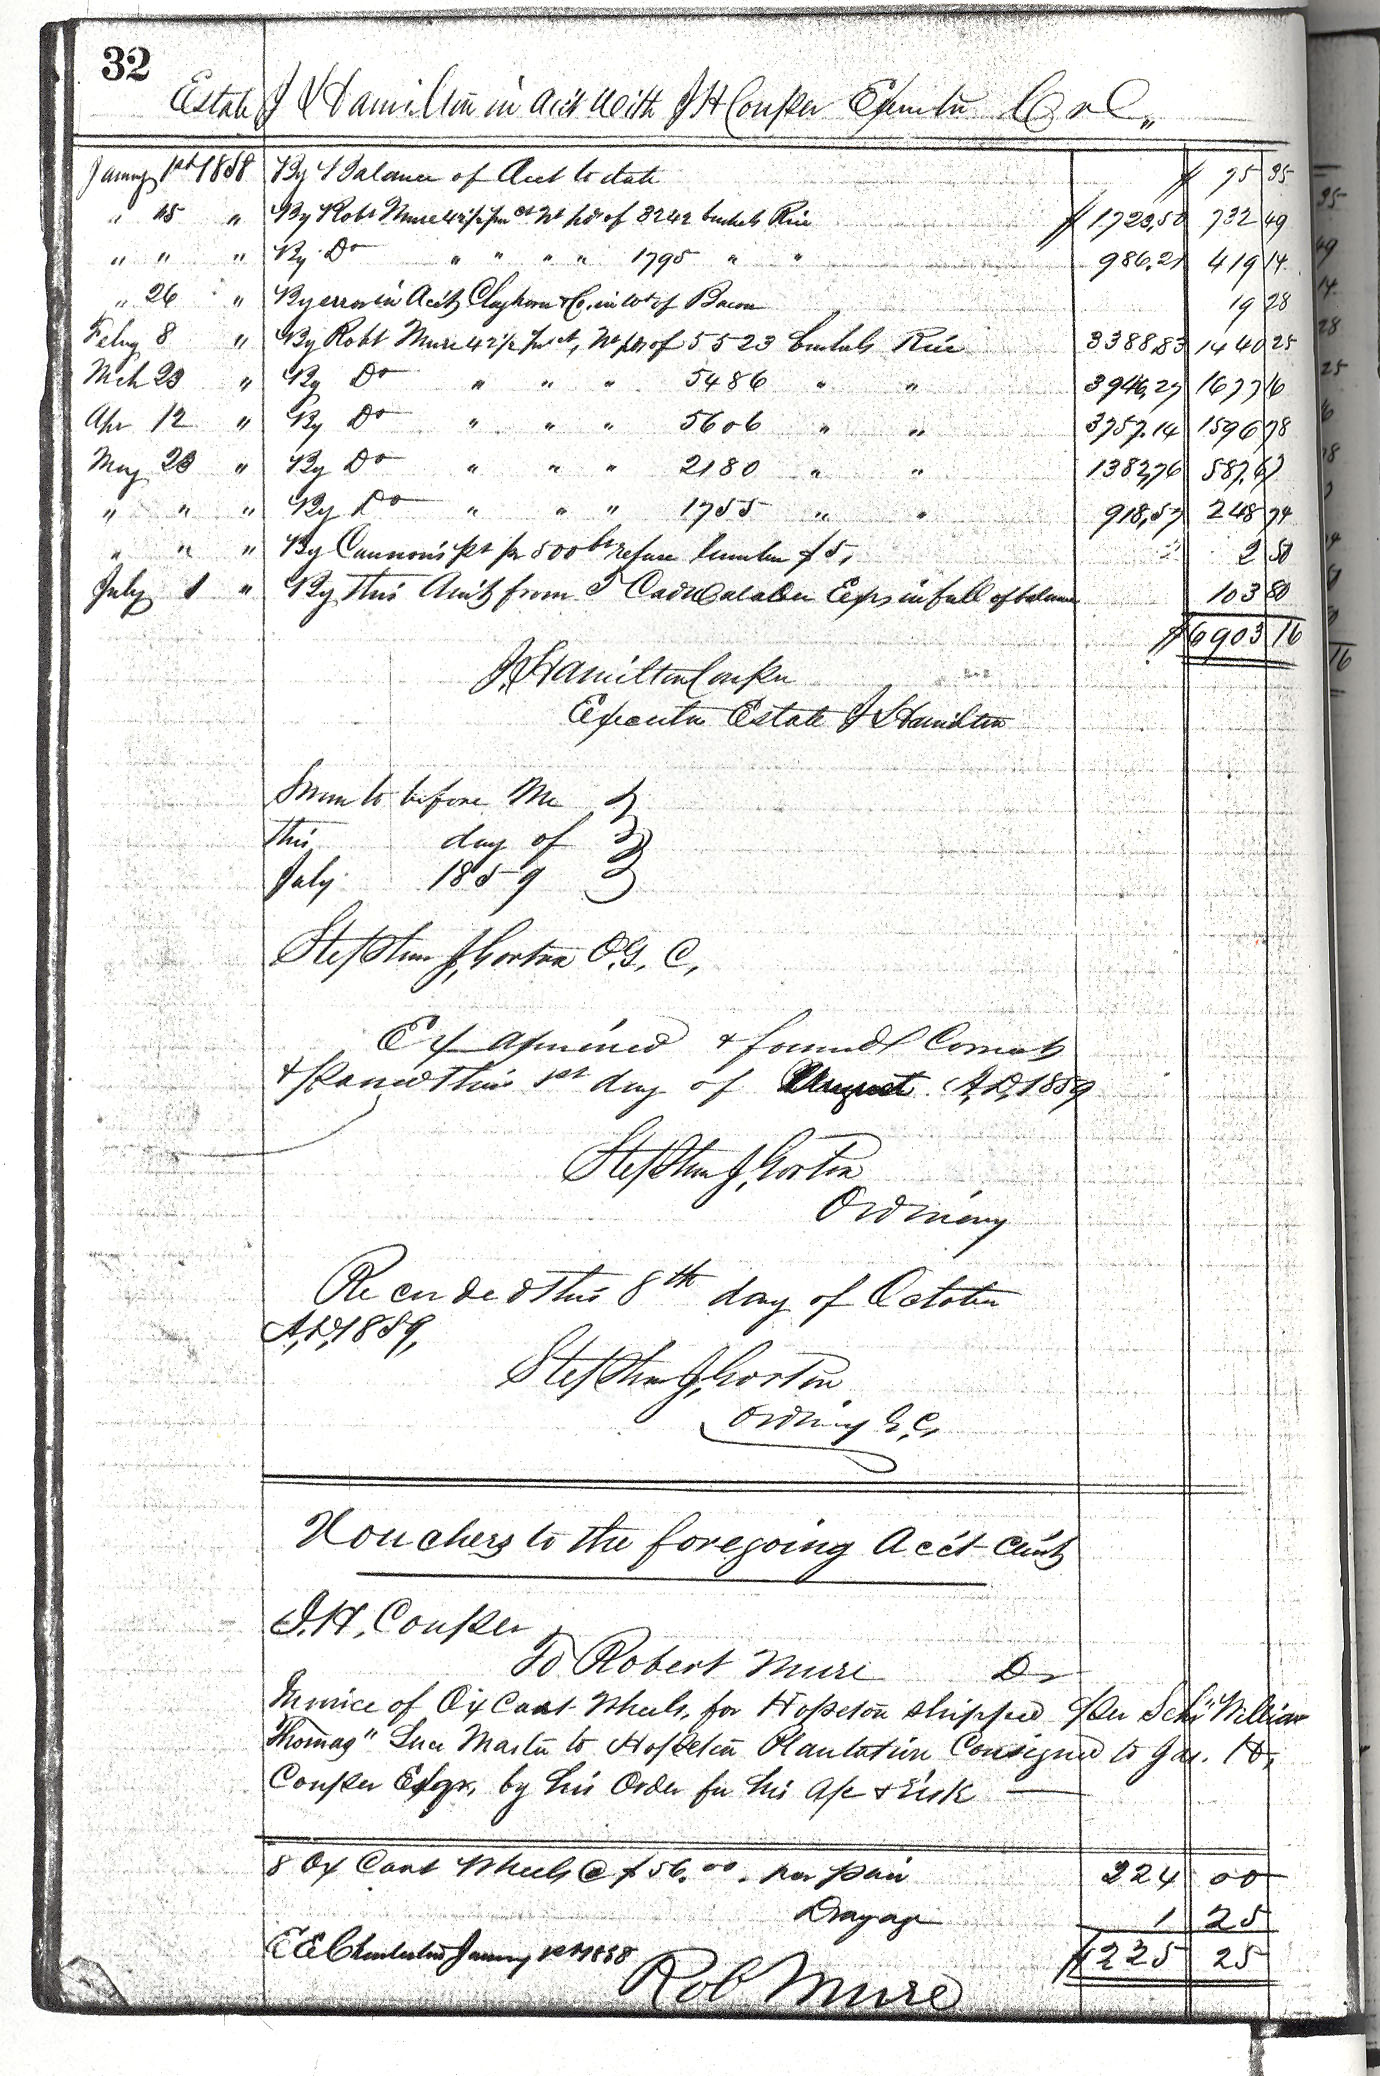 32
Estate J Hamilton in Acct With J H Couper Executor Cr
January 1st 1858 By Balance of Acct to date $ 75 35
" 15 " By Robt Mure 42½ per ct Nt pds of 3242 bushels Rice $1723,50 732 49
" " " By Do " " " " 1795 " " 986.21 419 14
" 26 " By error in Acct Claghorn & Co, in wt of Bacon 19 28
Feby 8 " By Robt Mure 42½ per ct, Nt pds of 5523 bushels Rice 3388,83 1440 25
Mch 23 " By Do " " " 5486 " " 3946,27 1677 16
Apr 12 " By Do " " " 5606 " " 3757.14 1596 78
May 23 " By Do " " " 2180 " " 1382,76 587. 67
" " " By Do " " " 1755 " " 918,57 248 74
" " " By Cannon's pt for 500 ft refuse lumber $5, 2 50
July 1 " By this Amt from T Exrs in full of balance 103 80
$6903 16
J. Hamilton Couper
Executor Estate J Hamilton
Sworn to before Me
this day of
July 1859
Stephen J. Gorton O.G.C.
Examined & found Correct
& passed this 1st day of August A,D, 1859
Stephen J. Gorton
Ordinary
Recorded this 8th day of October
A,D, 1859,
Stephen J. Gorton
Ordinary G.C.
Vouchers to the foregoing Acc't Cur't
J.H. Couper
To Robert Mure Dr
Invoice of Ox Cart Wheels, for Hopeton shipped per Sch "William
Thomas" Luce Master to Hopeton Plantation Consigned to Jas. H,
Couper Esqr, by his Order for his a/c & risk
8 Ox Cart Wheels @ $56.00. per pair 224 00
Drayage 1 25
E E Charleston January 1st 1858 $225 25
Rob Mure